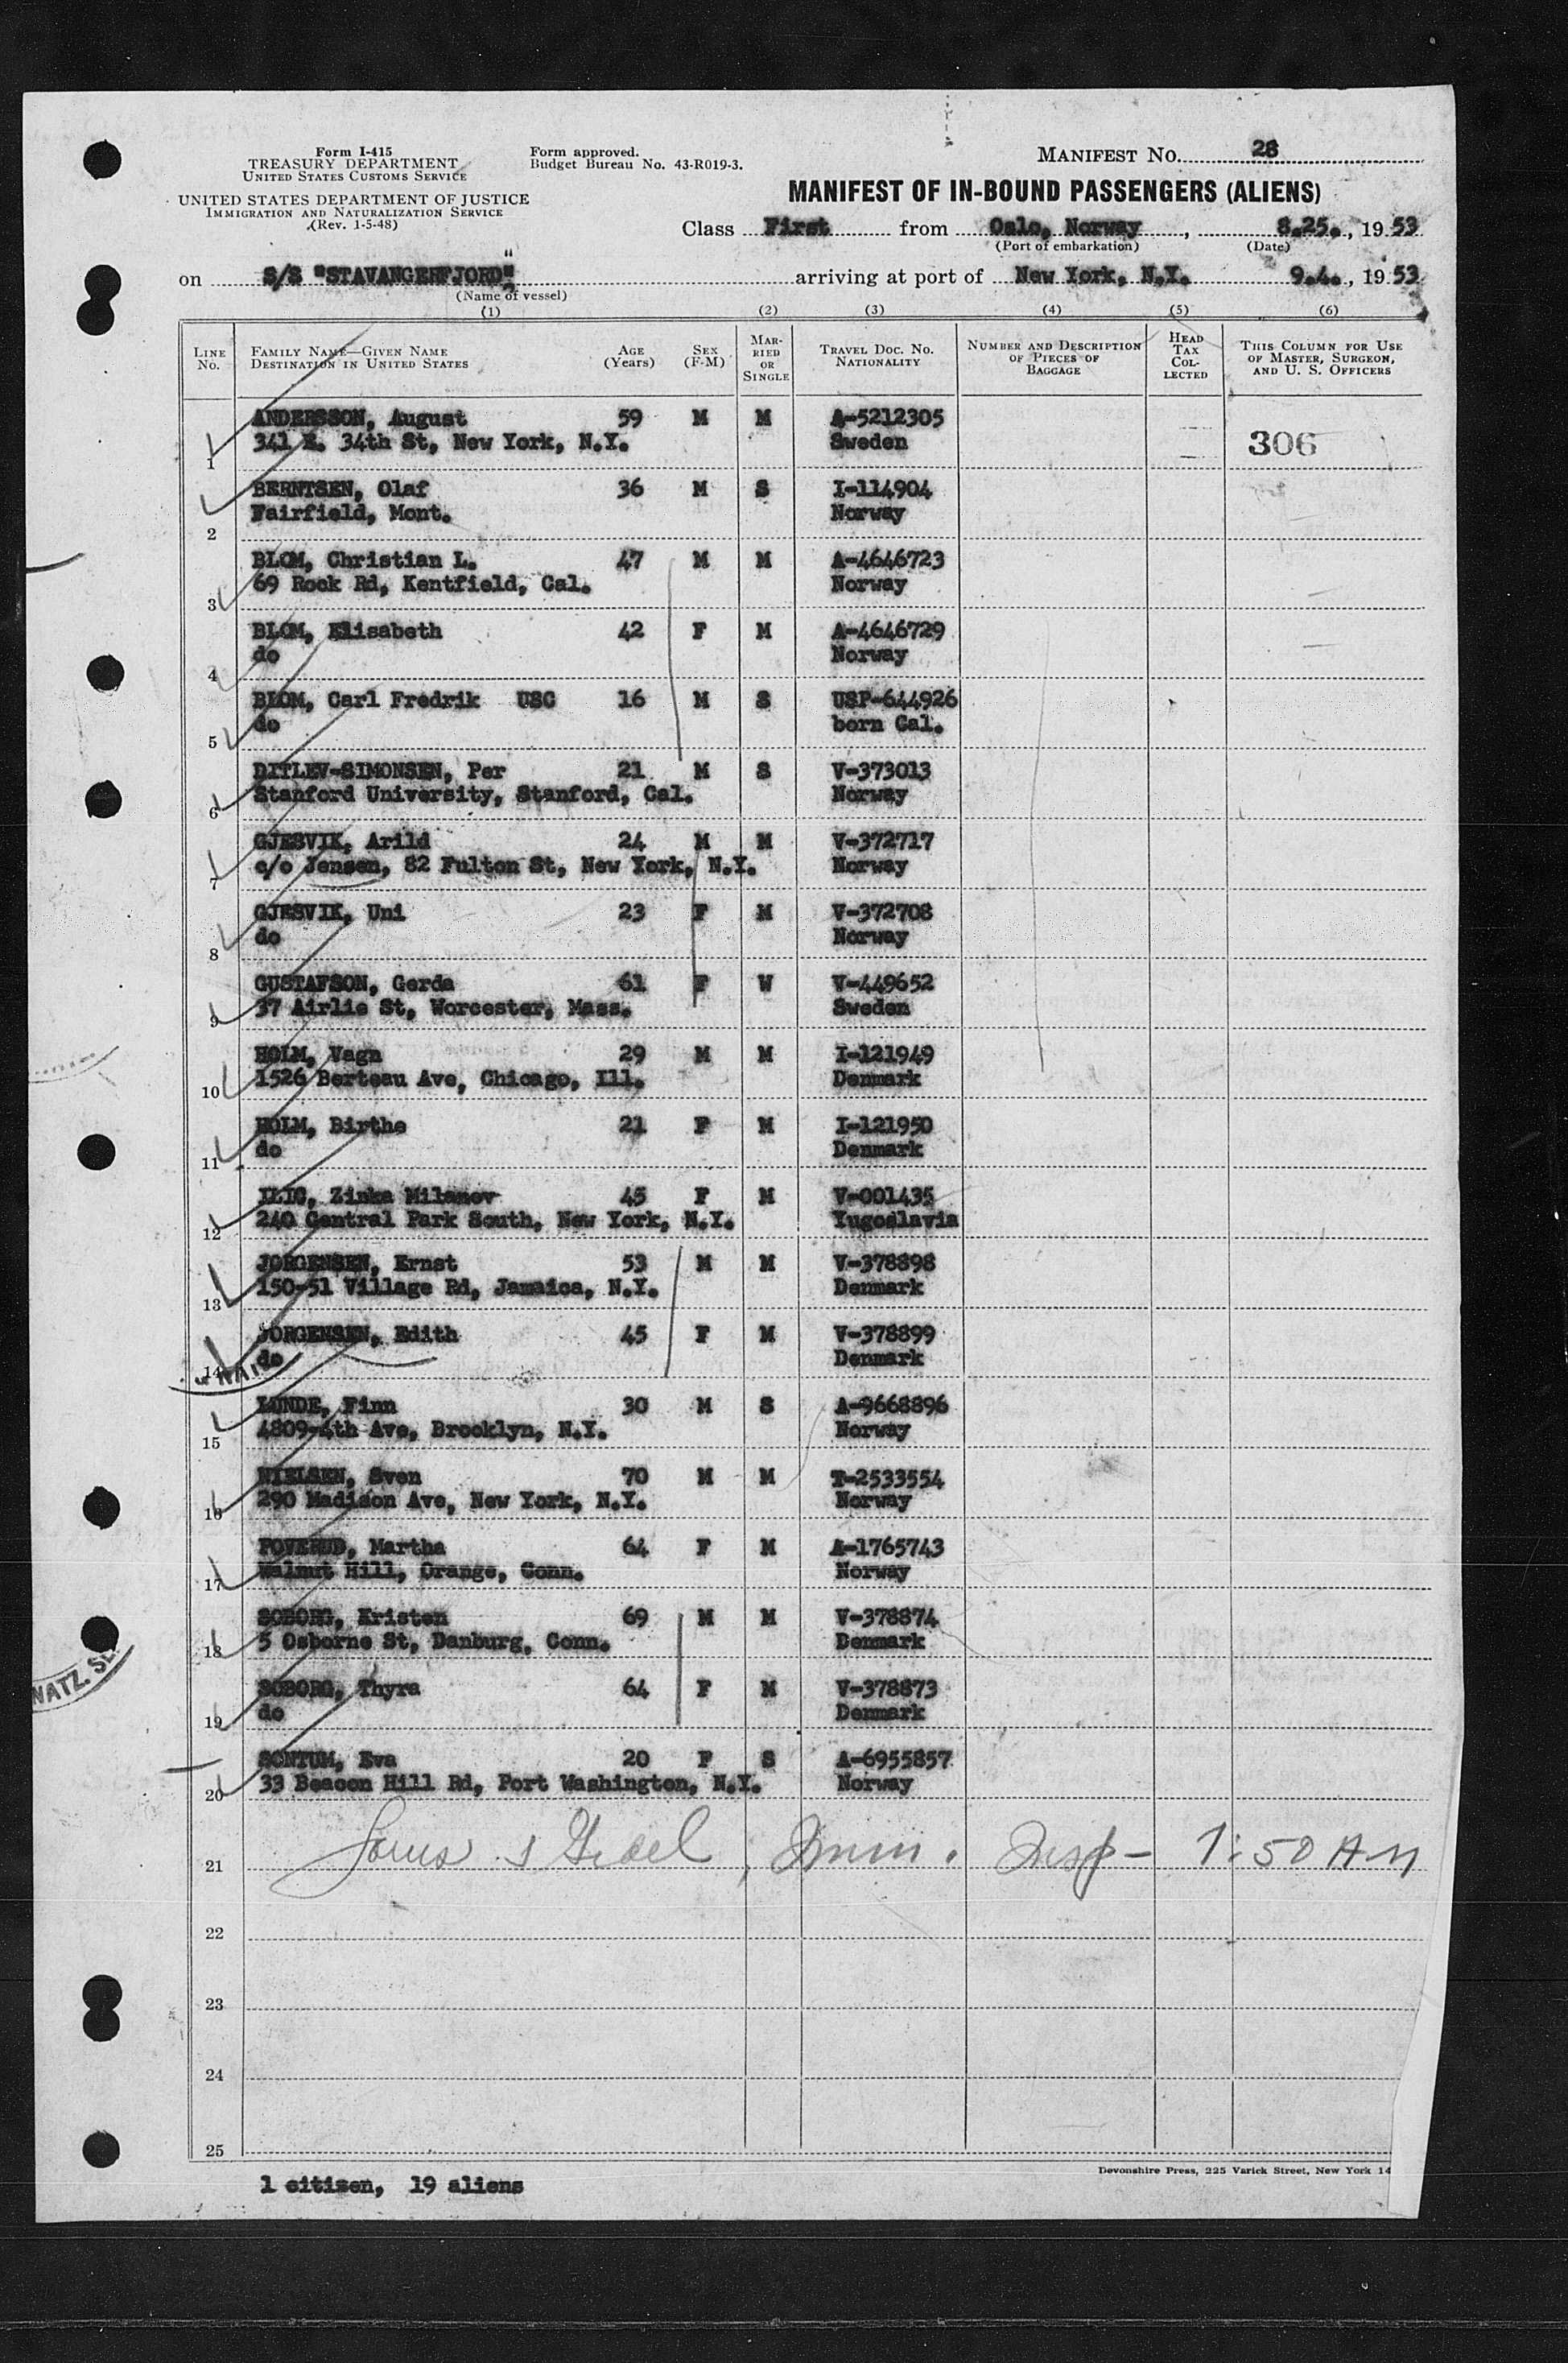 Form I-415
TREASURY DEPARTMENT
UNITED STATES CUSTOMS SERVICE
UNITED STATES DEPARTMENT OF JUSTICE
IMMIGRATION AND NATURALIZATION SERVICE
(Rev. 1-5-48)
Form approved.
Budget Bureau No. 43-R019-3.
MANIFEST NO. 28
MANIFEST OF IN-BOUND PASSENGERS (ALIENS)
Class First from Oslo, Norway, 8.25., 1953
(Port of embarkation) (Date)
on S/S "STAVANGERFJORD" arriving at port of New York, N.Y. 9.4., 1953
(Name of vessel)
(1) (2) (3) (4) (5) (6)
LINE NO. FAMILY NAME—GIVEN NAME DESTINATION IN UNITED STATES AGE (YEARS) SEX (F-M) MARRIED OR SINGLE TRAVEL DOC. NO. NATIONALITY NUMBER AND DESCRIPTION OF PIECES OF BAGGAGE HEAD TAX COLLECTED THIS COLUMN FOR USE OF MASTER, SURGEON, AND U. S. OFFICERS
ANDERSSON, August 59 M M A-5212305
1 341 E. 34th St, New York, N.Y. Sweden 306
BERNTSEN, Olaf 36 M S I-114904
2 Fairfield, Mont. Norway
BLOM, Christian L. 47 M M A-4646723
3 69 Rock Rd, Kentfield, Cal. Norway
BLOM, Elisabeth 42 F M A-4646729
4 do Norway
BLOM, Carl Fredrik USC 16 M S USP-644926
5 do born Cal.
DITLEV-SIMONSEN, Per 21 M S V-373013
6 Stanford University, Stanford, Cal. Norway
GJESVIK, Arild 24 M M V-372717
7 c/o Jensen, 82 Fulton St, New York, N.Y. Norway
GJESVIK, Uni 23 F M V-372708
8 do Norway
GUSTAFSON, Gerda 61 F W V-449652
9 37 Airlie St, Worcester, Mass. Sweden
HOLM, Vagn 29 M M I-121949
10 1526 Berteau Ave, Chicago, Ill. Denmark
HOLM, Birthe 21 F M I-121950
11 do Denmark
ILIC, Zinka Milanov 45 F M V-001435
12 240 Central Park South, New York, N.Y. Yugoslavia
JORGENSEN, Ernst 53 M M V-378898
13 150-51 Village Rd, Jamaica, N.Y. Denmark
JORGENSEN, Edith 45 F M V-378899
14 do Denmark
LUNDE, Finn 30 M S A-9668896
15 4809-4th Ave, Brooklyn, N.Y. Norway
NIELSEN, Sven 70 M M T-2533554
16 290 Madison Ave, New York, N.Y. Norway
POVERUD, Martha 64 F M A-1765743
17 Walnut Hill, Orange, Conn. Norway
SOBORG, Kristen 69 M M V-378874
18 5 Osborne St, Danburg, Conn. Denmark
SOBORG, Thyra 64 F M V-378873
19 do Denmark
SONTUM, Eva 20 F S A-6955857
20 33 Beacon Hill Rd, Port Washington, N.Y. Norway
21 Imm. Insp- 1:50 AM
22
23
24
25
Devonshire Press, 225 Varick Street, New York 14
1 citizen, 19 aliens